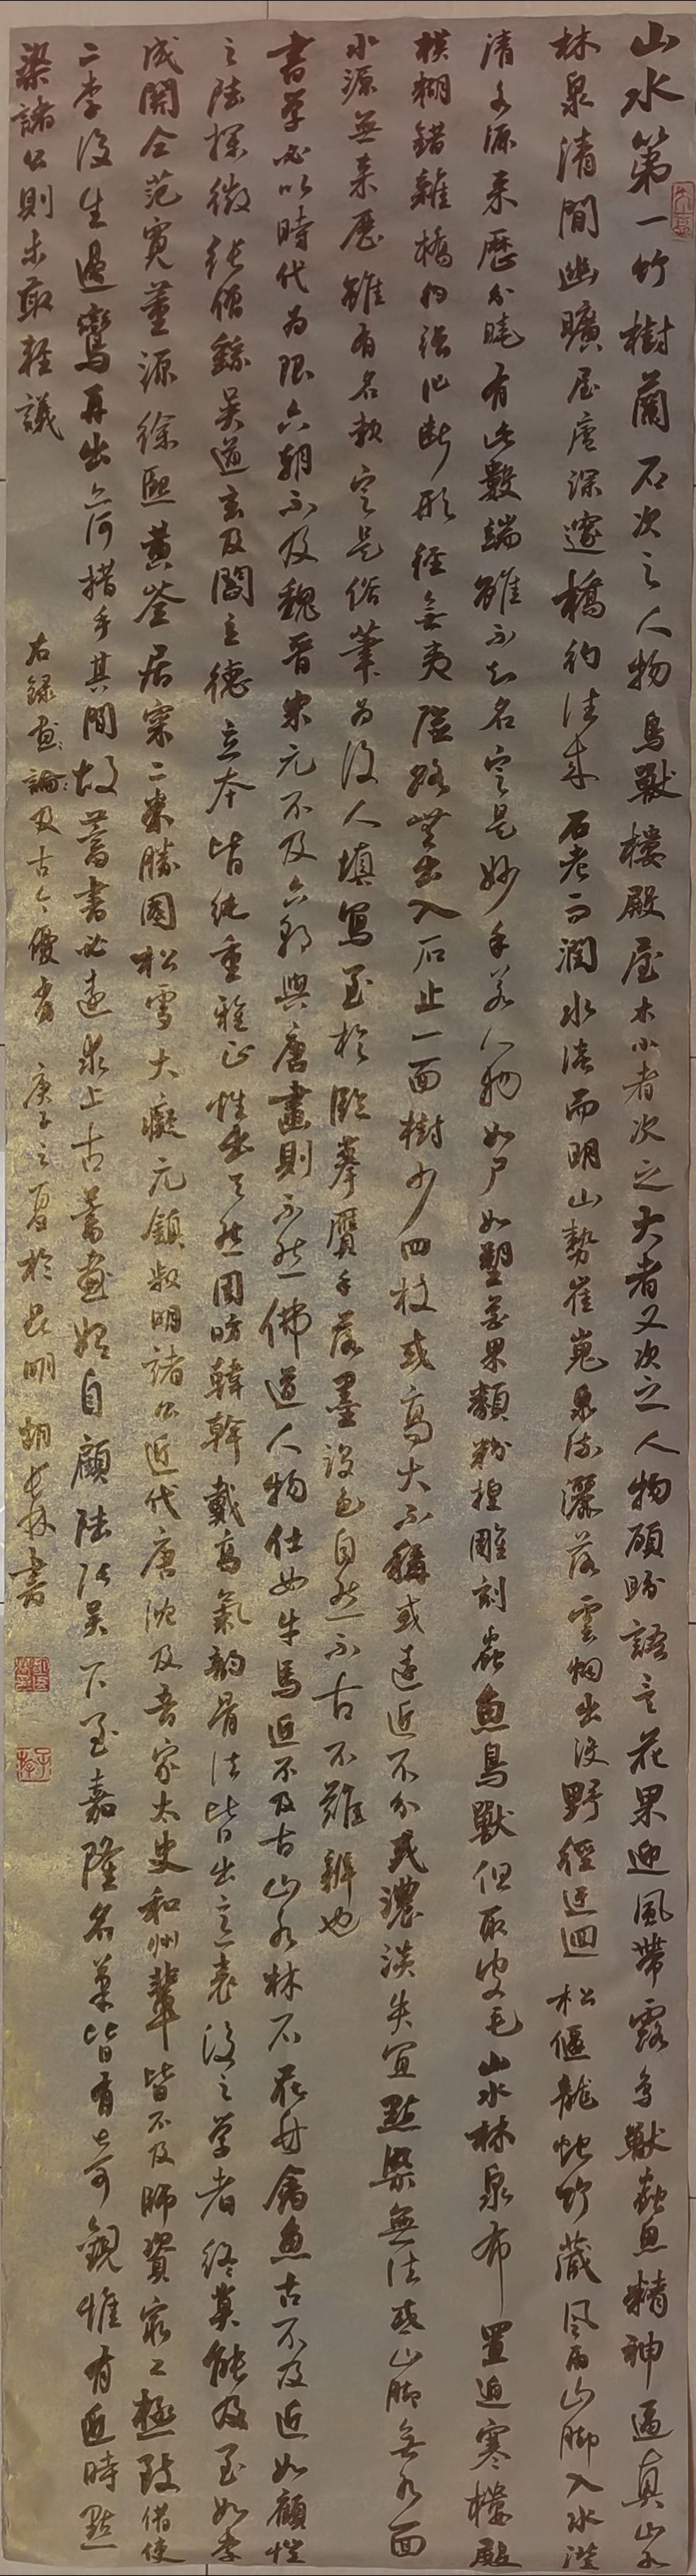 山水第一竹樹蘭石次之人物鳥獸樓殿屋木小者次之大者又次之人物顧盼語言花果迎風帶露鳥獸蟲魚精神逼真山水
林泉清閒幽曠屋廬深邃橋彴往來石老而潤水淡而明山勢崔嵬泉流灑落雲烟出沒野徑迂迴松偃龍蛇竹藏風雨山脚入水澄
清水源来歷分曉有此數端雖不知名定是妙手若人物如尸如塑花果類粉揑雕刻蟲魚鳥獸但取皮毛山水林泉布置迫塞樓殿
模糊錯雜橋彴強作斷形徑無夷險路無出入石止一面樹少四枝或高大不稱或遠近不分或濃淡失宜點染無法或山脚無水面
水源無来歷雖有名款定是俗筆為後人填寫至於臨摹贋手落墨設色自然不古不難辨也
書學必以時代為限六朝不及魏晋宋元不及六朝與唐畫則不然佛道人物仕女牛馬近不及古山水林石花竹禽魚古不及近如顧愷
之陸探微張僧繇吳道玄及閻立德立本皆純重雅正性出天然周昉韓幹戴嵩氣韵骨法皆出意表後之学者終莫能及至如李
成關仝范寬董源徐熙黄荃居寀二米勝國松雪大癡元鎮叔明諸公近代唐沈及吾家太史和州輩皆不及師資窮工極致借使
二李復生邊鸞再出亦何措手其間故蓄書必遠求上古蓄畫始自顧陸張吳下至嘉隆名筆皆有奇觀惟有近時點
染諸公則未敢輕議
右録畫論及古今優劣 庚子之夏於昆明 胡長林書